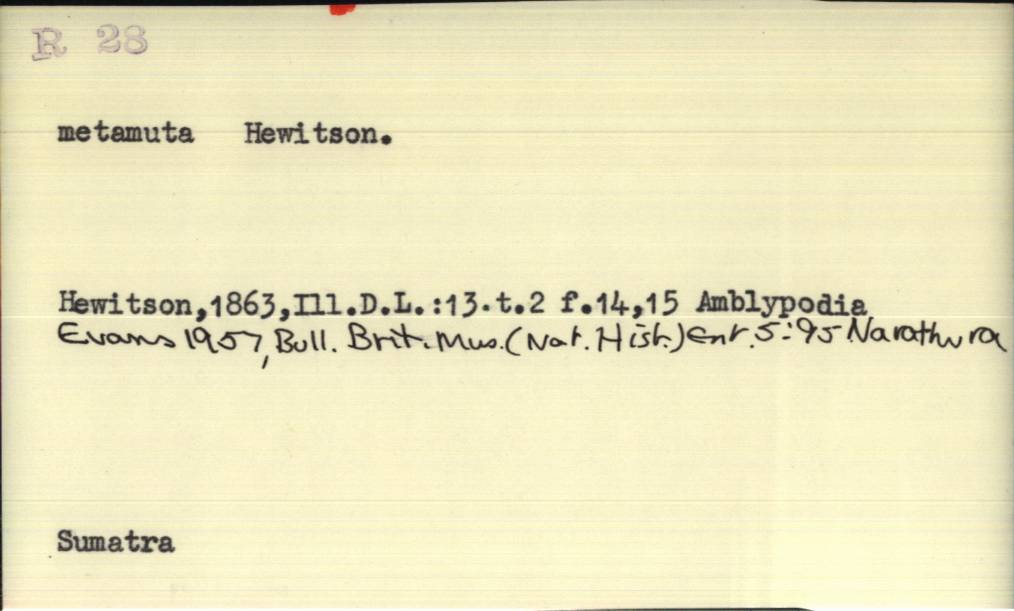 R 28
metamuta Hewitson.
Hewitson,1863,Ill.D.L.:13.t.2 f.14,15 Amblypodia
Evans 1957, Bull. Brit. Mus. (Nat. Hist.) Ent. 5:95 Narathura
Sumatra